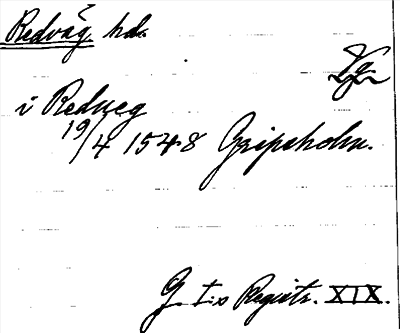 Redväg. hd.
i Redweg
19/4 1548 Gripsholm.
G. I:s Registr. XIX.